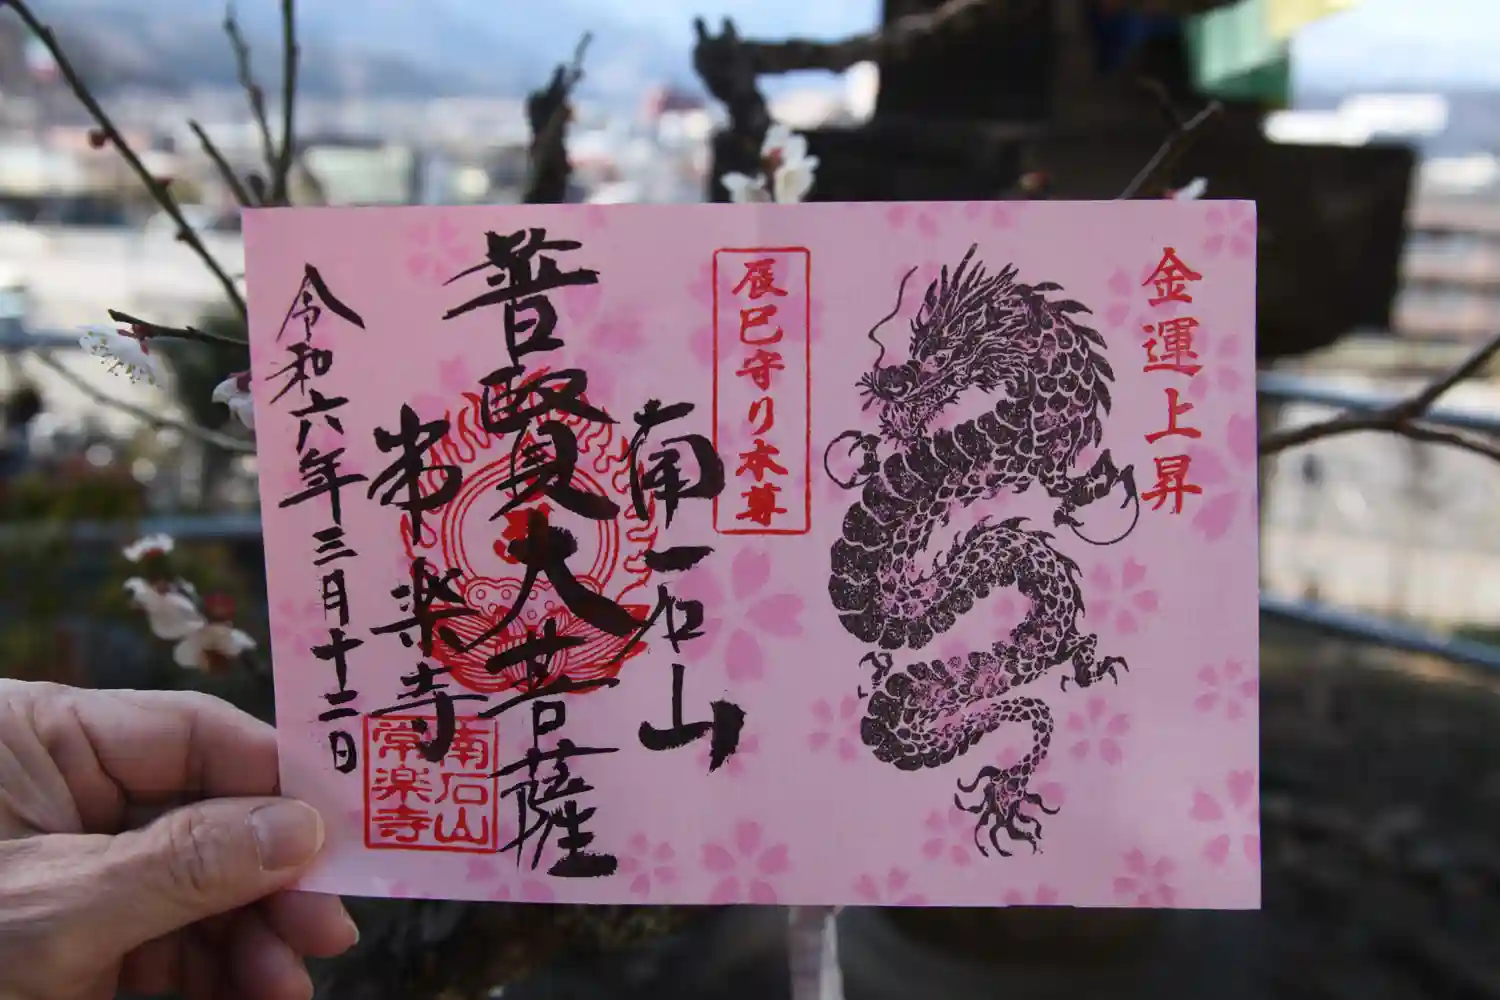 金運上昇
辰巳守り本尊
南石山
普賢大菩薩
常楽寺
南石山
常楽寺
令和六年三月十二日